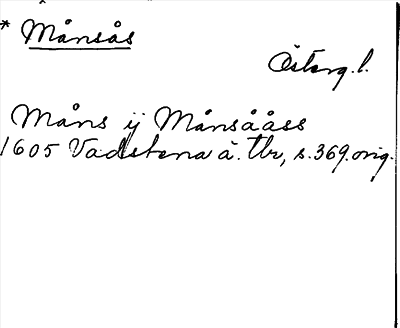 * Månsås
Österg. l.
Måns ij Månsååss
1605 Vadstena ä. Tbr, s. 369. orig.